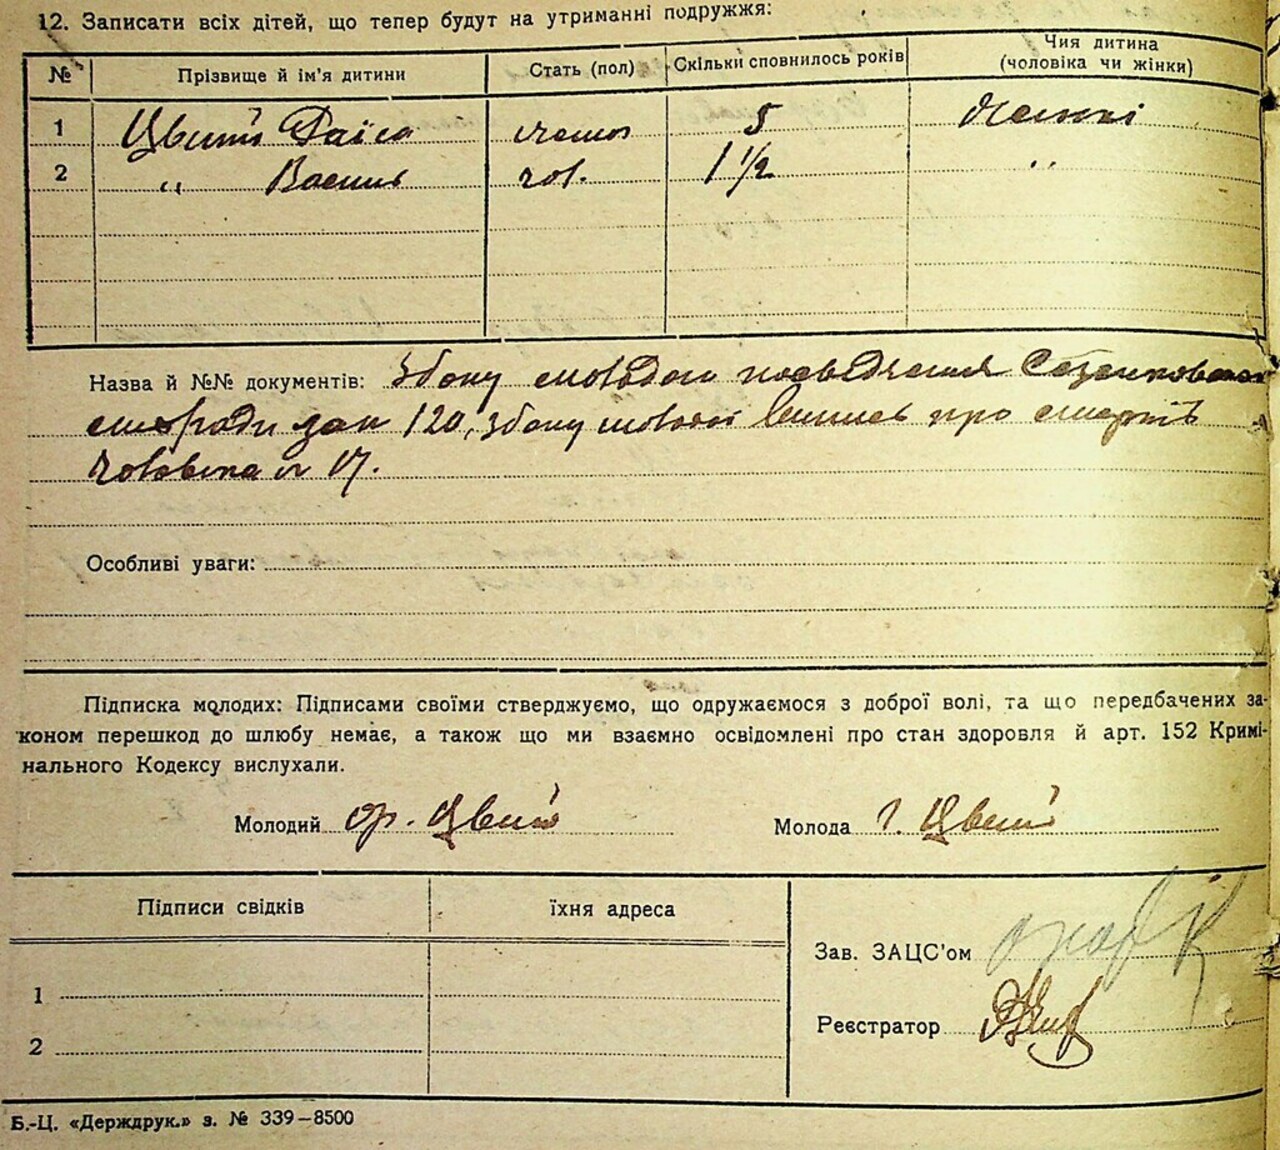 12. Записати всіх дітей, що тепер будут на утриманні подружжя:
№ Прізвище й ім'я дитини Стать (пол) Скільки сповнилось років Чия дитина (чоловіка чи жінки)
1 Цвіт 5
2 " Василь чол. 1 1/2 "
Назва й №№ документів: З боку молодого посвідчення
зан 120, з боку молодої виписъ про смерть
чоловіка № 17.
Особливі уваги:
Підписка молодих: Підписами своїми стверджуємо, що одружаємося з доброї волі, та що передбачених за-
коном перешкод до шлюбу немає, а також що ми взаємно освідомлені про стан здоровля й арт. 152 Кримі-
нального Кодексу вислухали.
Молодий Цвіт Молода Г. Цвіт
Підписи свідків їхня адреса
Зав. ЗАЦС'ом
1
Реєстратор
2
Б.-Ц. «Держдрук.» з. № 339-8500